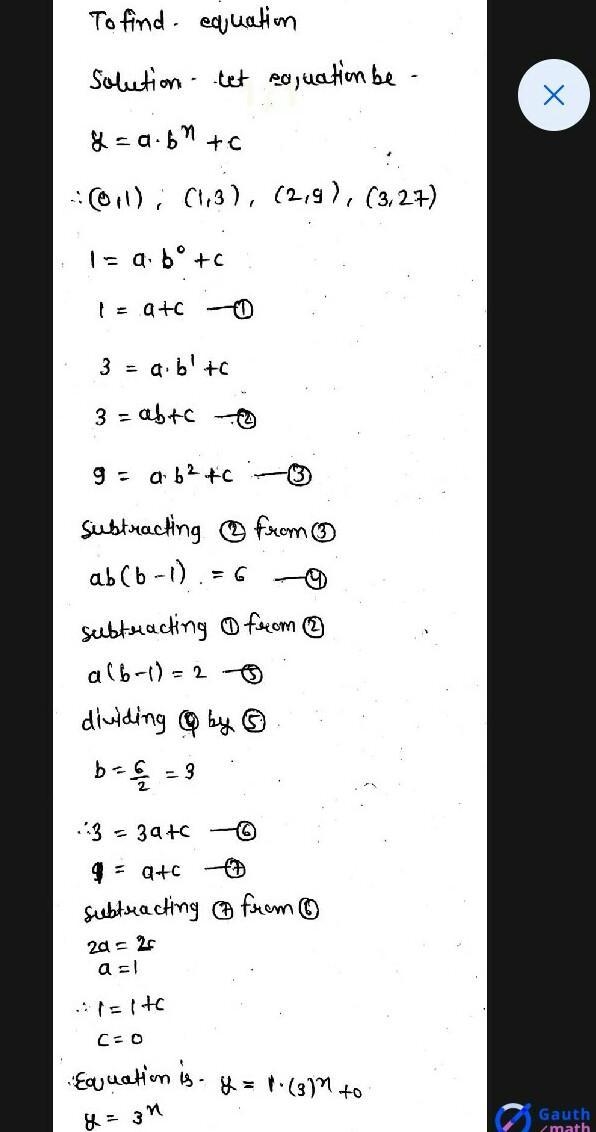 To find - equation
Solution - let equation be -
y = a·bⁿ + c
∴ (0,1), (1,3), (2,9), (3,27)
1 = a·b⁰ + c
1 = a+c —①
3 = a·b¹ + c
3 = ab+c —②
9 = a·b² + c —③
subtracting ② from ③
ab(b-1) = 6 —④
subtracting ① from ②
a(b-1) = 2 —⑤
dividing ④ by ⑤
b = 6/2 = 3
∴ 3 = 3a+c —⑥
1 = a+c —⑦
subtracting ⑦ from ⑥
2a = 2
a = 1
∴ 1 = 1+c
c = 0
∴ Equation is - y = 1·(3)ⁿ + 0
y = 3ⁿ
Gauth
math